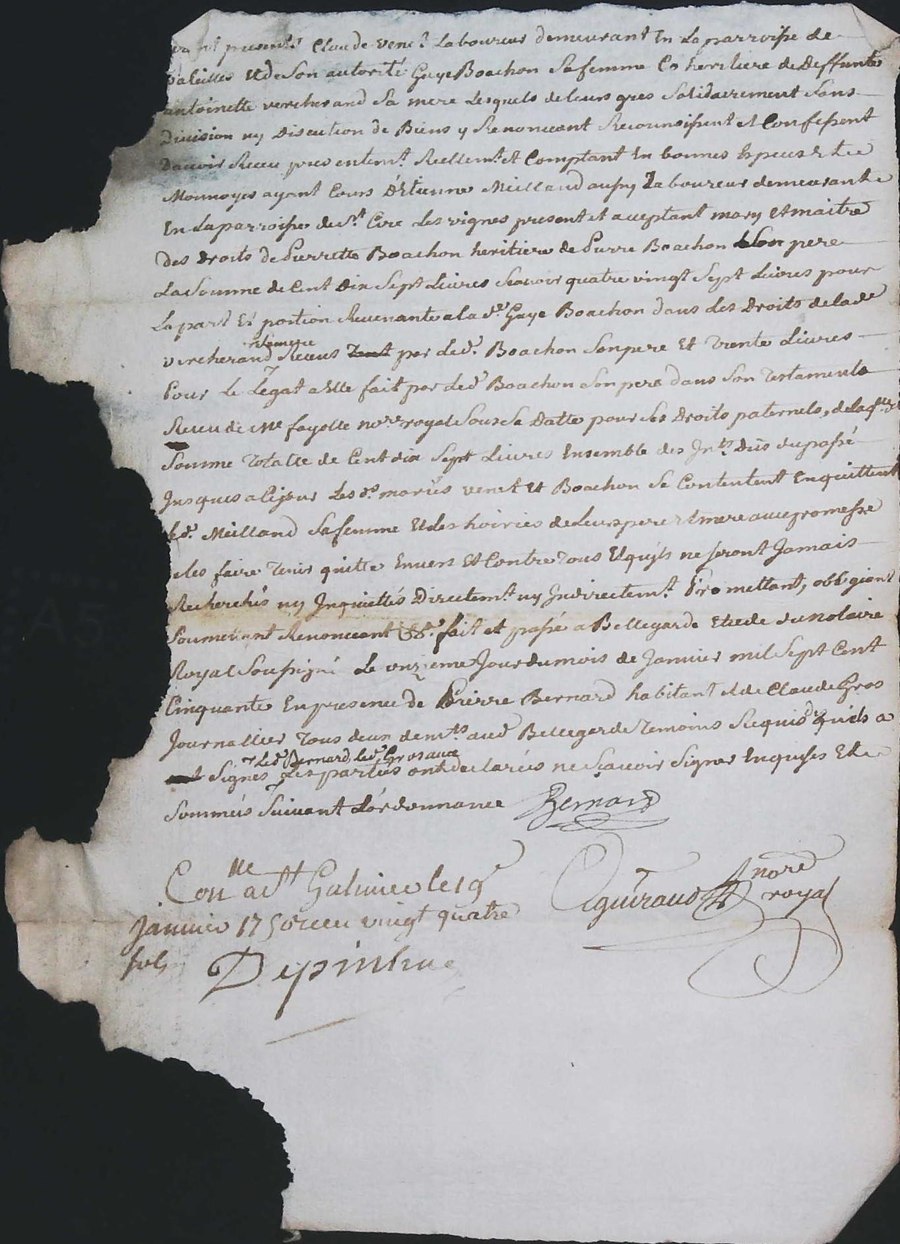 present.^t Claude venet Laboureur demeurant En La parroisse de
valeille Et de Son autorité Gaye Boachon Sa femme Co heritiere de Deffunte
antoinette vercherand Sa mere Lesquels de leurs gres Solidairement Sans
Division ny Discution de Biens y Renonceant Reconnoissent et Confessent
Davoir Receu presentem.^t Reellem.^t et Comptant En bonnes Especes Et
Monnoyes ayant Cours D'Etienne Meilland aussy Laboureur demeurant
En La parroisse de S.^t Cire Les vignes present et acceptant mary Et maitre
des Droits de Pierrette Boachon heritiere de Pierre Boachon Son pere
La Somme de Cent Dix Sept Livres Scavoir quatre vingt Sept Livres pour
La part Et portion Revenante a la d.^e Gaye Boachon dans Les Droits de lade
vercherand Receus par led.^t Boachon Son pere Et Trente Livres
Pour Le Legat a Elle fait par led.^t Boachon Son pere dans Son Testament
Receu de M^e fayolle no^re royal Sous Sa Datte pour Ses Droits paternels, de la q^lle
Somme Totalle de Cent dix Sept Livres Ensemble des Int.^ts Dus du passé
Jusques a Ce jour Les d.^s mariés venet Et Boachon Se Contentent En quittent
led.^t Meilland Sa femme Et les hoiries de Leurs pere Et mere avec promesse
de les faire Tenir quitte Envers Et Contre Tous Et quils ne Seront Jamais
Recherchés ny Inquiettés Directem.^t ny Indirectem.^t Promettant, obligeant
Soumettant Renonceant &.^a fait et passé a Bellegarde Etude du notaire
Royal Soussigné Le onzieme Jour du mois de Janvier mil Sept Cent
Cinquante En presence de Pierre Bernard habitant Et de Claude Gros
Journallier Tous deux dem.^ts aud Bellegarde Temoins
Led.^t Bernard led.^t Gros avec
Signés Les parties ont declarées ne Scavoir Signer Enquises Et
Sommés Suivant L'ordonnance Bernard
Con^lle a S^t Galmier le 19^e
Aguiraud no^re royal
Janvier 1750 receu vingt quatre
sols
Depinhac